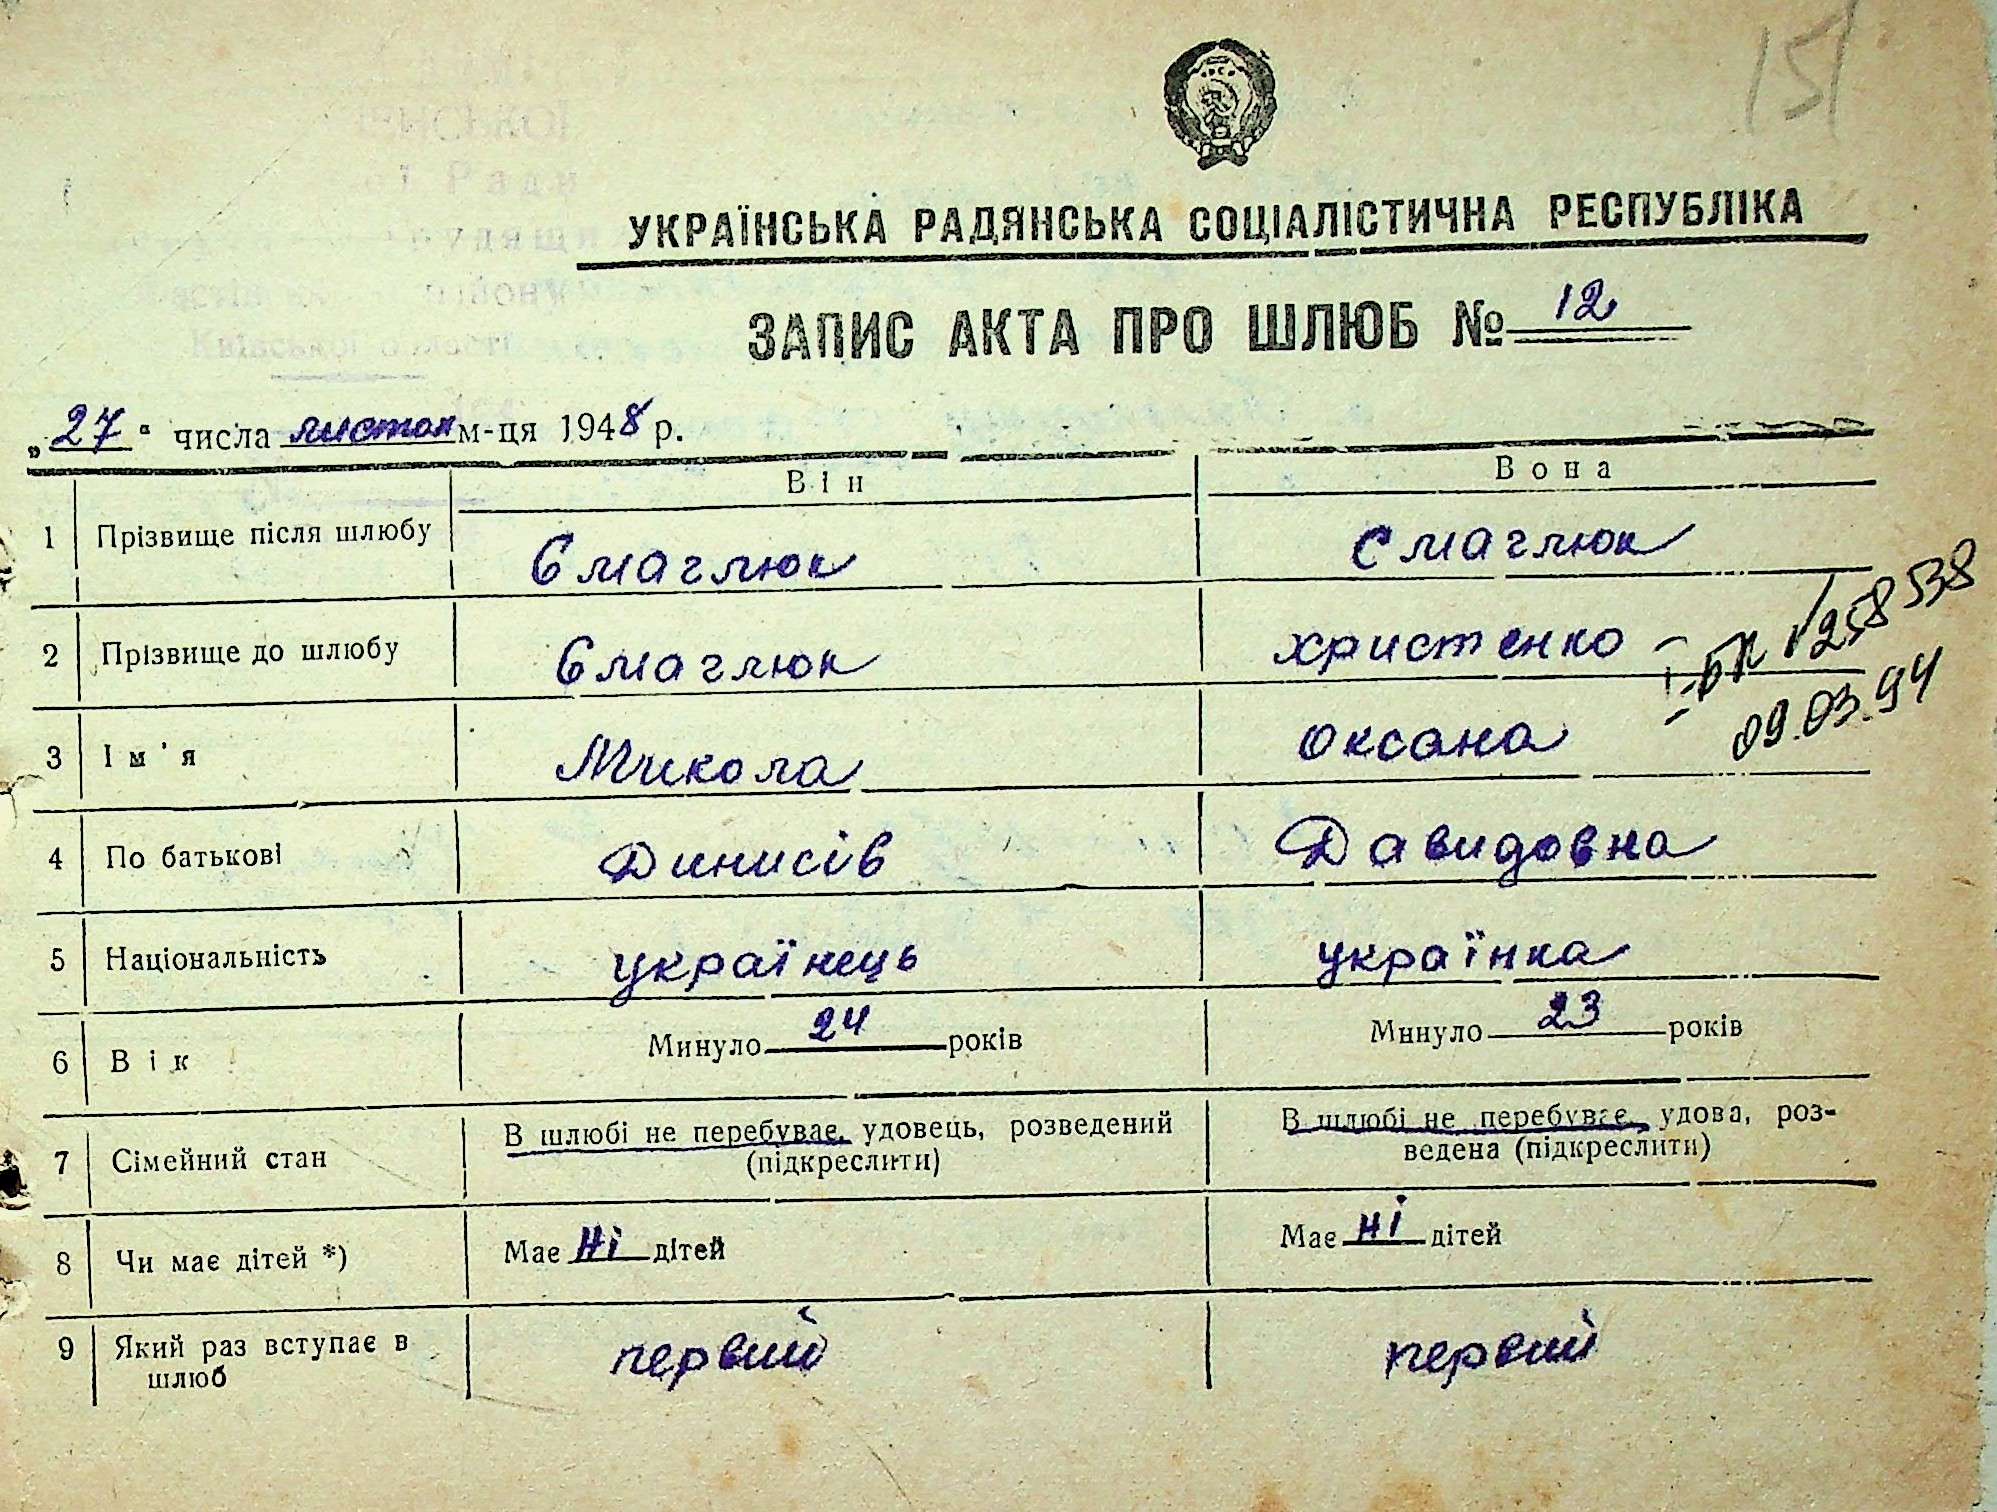 151
УКРАЇНСЬКА РАДЯНСЬКА СОЦІАЛІСТИЧНА РЕСПУБЛІКА
ЗАПИС АКТА ПРО ШЛЮБ № 12
„27" числа листоп м-ця 1948 р.
Він Вона
1 Прізвище після шлюбу Смаглюк Смаглюк
2 Прізвище до шлюбу Смаглюк Христенко
БК 1258538
09.03.94
3 Ім'я Микола Оксана
4 По батькові Динисів Давидовна
5 Національність українець українка
6 Вік Минуло 24 років Минуло 23 років
7 Сімейний стан В шлюбі не перебуває, удовець, розведений (підкреслити) В шлюбі не перебуває, удова, роз-
ведена (підкреслити)
8 Чи має дітей *) Має ні дітей Має ні дітей
9 Який раз вступає в шлюб первий первий